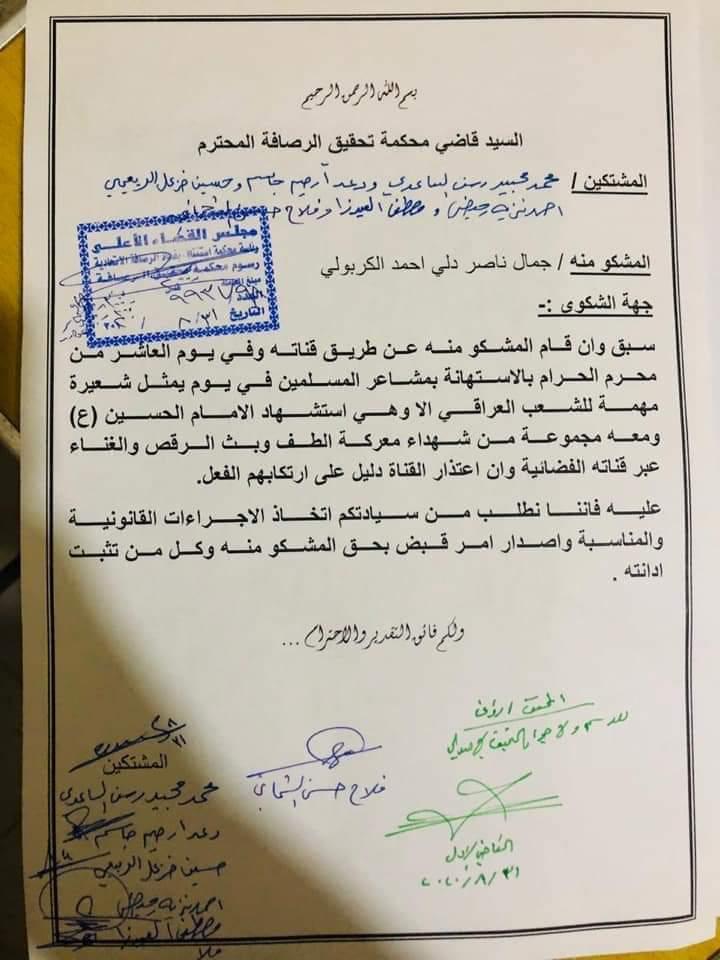 بسم الله الرحمن الرحيم
السيد قاضي محكمة تحقيق الرصافة المحترم
المشتكين / محمد مجبيد رسن الساعدي ودعد ارحيم جاسم وحسين خزعل الربيعي
احمد نزيه وميض و مصطفى وفلاح حسن
مجلس القضاء الأعلى
رئاسة محكمة استئناف بغداد الرصافة الاتحادية
رسوم محكمة تحقيق الرصافة
العدد
التاريخ ٣١/ ٨/
المشكو منه / جمال ناصر دلي احمد الكربولي
جهة الشكوى :-
سبق وان قام المشكو منه عن طريق قناته وفي يوم العاشر من
محرم الحرام بالاستهانة بمشاعر المسلمين في يوم يمثل شعيرة
مهمة للشعب العراقي الا وهي استشهاد الامام الحسين (ع)
ومعه مجموعة من شهداء معركة الطف وبث الرقص والغناء
عبر قناته الفضائية وان اعتذار القناة دليل على ارتكابهم الفعل.
عليه فاننا نطلب من سيادتكم اتخاذ الاجراءات القانونية
والمناسبة واصدار امر قبض بحق المشكو منه وكل من تثبت
ادانته .
ولكم فائق التقدير والاحترام ...
القاضي الاول
٢٠٢٠/٨/٣١
فلاح حسن
المشتكين
محمد مجبيد رسن الساعدي
دعد ارحيم جاسم
حسين خزعل الربيعي
احمد نزيه وميض
مصطفى